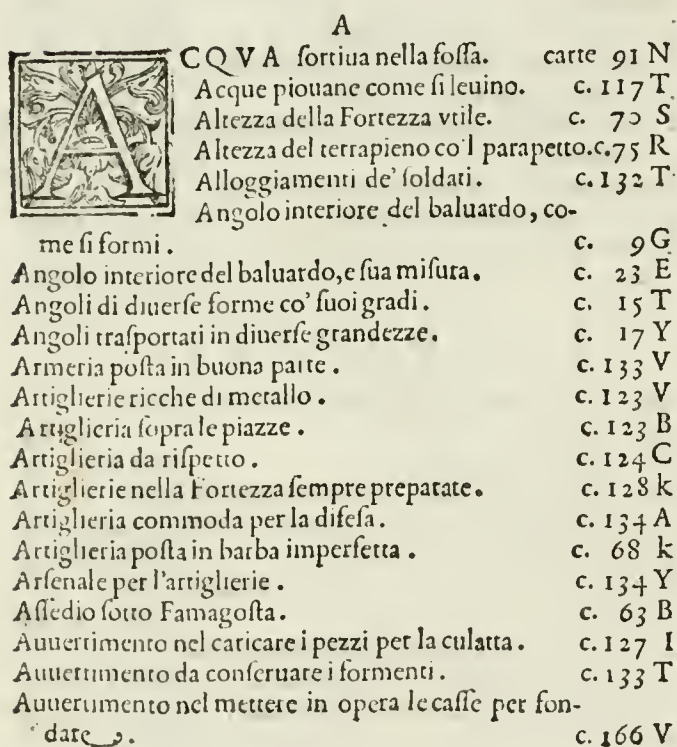 A
ACQVA ſortiua nella foſſa. carte 91 N
Acque piouane come ſi leuino. c. 117 T
Altezza della Fortezza vtile. c. 70 S
Altezza del terrapieno co'l parapetto. c. 75 R
Alloggiamenti de' ſoldati. c. 132 T
Angolo interiore del baluardo, co-
me ſi formi. c. 9 G
Angolo interiore del baluardo, e ſua miſura. c. 23 E
Angoli di diuerſe forme co' ſuoi gradi. c. 15 T
Angoli traſportati in diuerſe grandezze. c. 17 Y
Armeria poſta in buona parte. c. 133 V
Artiglierie ricche di metallo. c. 123 V
Artiglieria ſopra le piazze. c. 123 B
Artiglieria da riſpetto. c. 124 C
Artiglierie nella Fortezza ſempre preparate. c. 128 k
Artiglieria commoda per la difeſa. c. 134 A
Artiglieria poſta in barba imperfetta. c. 68 k
Arſenale per l'artiglierie. c. 134 Y
Aſſedio ſotto Famagoſta. c. 63 B
Auuertimento nel caricare i pezzi per la culatta. c. 127 I
Auuertimento da conſeruare i formenti. c. 133 T
Auuertimento nel mettere in opera le caſſe per fon-
dare. c. 166 V